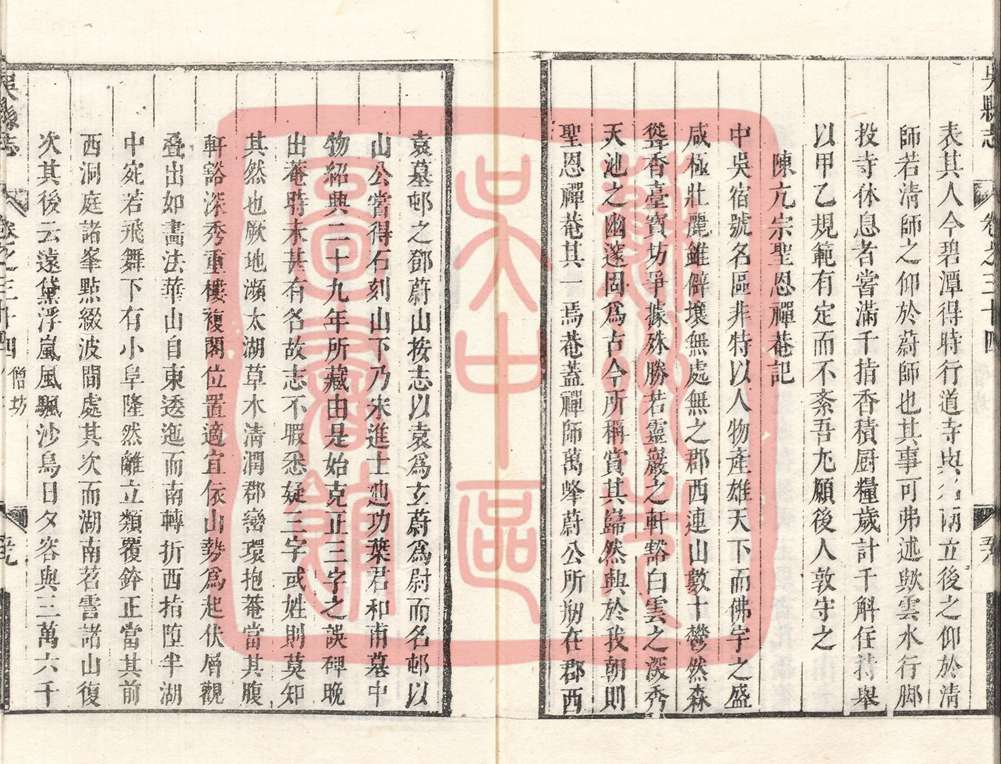 吳縣志
卷之三十四
表其人今碧潭得時行道寺與名兩立後之仰於清
師若清師之仰於蔚師也其事可弗述歟雲水行脚
投寺休息者嘗滿千指香積厨糧歲計千斛任持舉
以甲乙規範有定而不紊吾尤願後人敦守之
陳亢宗聖恩禪菴記
中吳宿號名區非特以人物產雄天下而佛宇之盛
咸極壯麗雖僻壤無處無之郡西連山數十鬱然森
聳香臺寶坊爭據殊勝若靈巖之軒豁白雲之深秀
天池之幽邃固爲古今所稱賞其巋然興於我朝則
聖恩禪菴其一焉菴蓋禪師萬峰蔚公所剏在郡西
袁墓邨之鄧蔚山按志以袁爲玄蔚爲尉而名邨以
山公嘗得石刻山下乃宋進士迪功葉君和甫墓中
物紹興二十九年所藏由是始克正三字之誤碑晚
出菴時未甚有名故志不暇悉疑三字或姓則莫知
其然也厥地瀕太湖草木清潤郡巒環抱菴當其腹
軒豁深秀重樓複閣位置適宜依山勢爲起伏層觀
疊出如畫法華山自東透迤而南轉折西指墮半湖
中宛若飛舞下有小阜隆然離立類覆錊正當其前
西洞庭諸峯點綴波間處其次而湖南苕霅諸山復
次其後云遠黛浮嵐風颿沙鳥日夕容與三萬六千
吳縣志
卷之三十四
僧坊
蘇州市
吳中區
圖書館